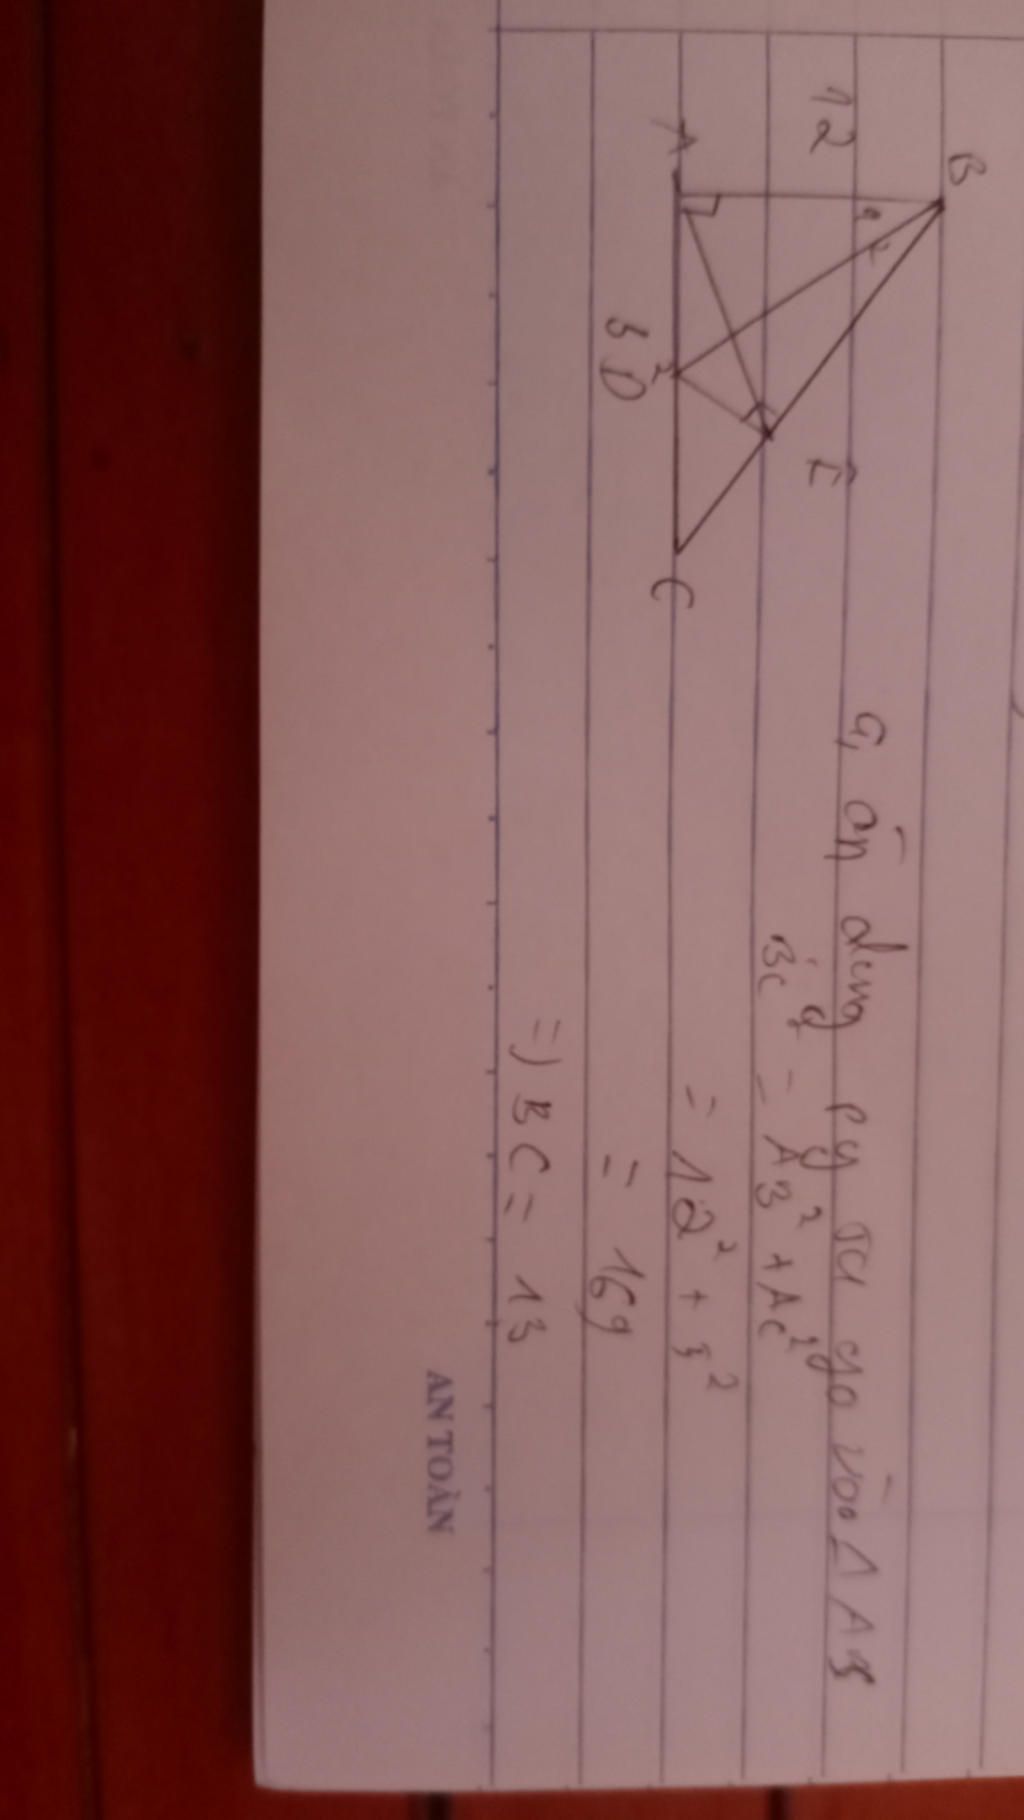 B
12
1 2
E
A
2
5 D
C
a, áp dụng Py ta go vào Δ AB
BC² = AB² + AC²
= 12² + 5²
= 169
=) BC = 13
AN TOÀN